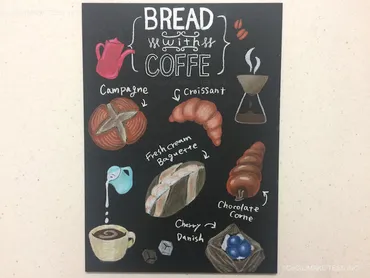 BREAD
with
COFFE
Campagne
Croissant
Fresh cream
Baguette
Chocolate
Corne
Cherry
Danish